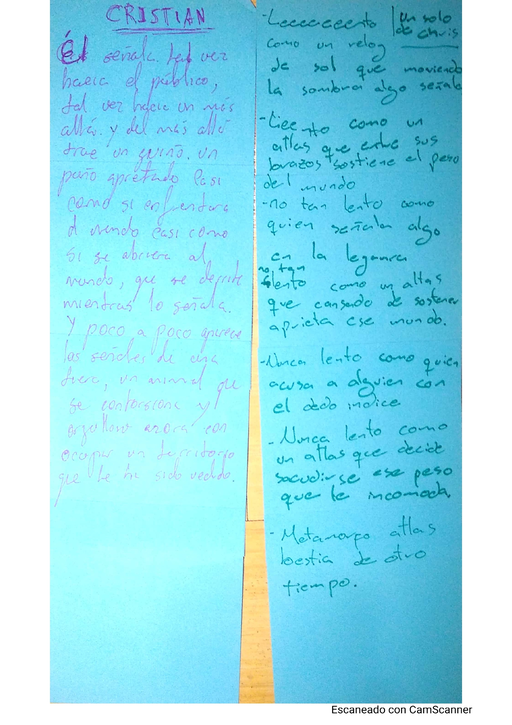 CRISTIAN
Él señala tal vez
hacia el público,
tal vez hacia un más
allá. y del más allá
trae un guiño. un
puño apretado casi
como si enfrentara
el mundo casi como
si se abriera al
mundo, que se derrite
mientras lo señala.
Y poco a poco aparece
las señales de una
fiera, un animal que
se contorsiona y
orgulloso azorá con
ocupar un territorio
que le ha sido vedado.
un solo
de chris
-Leeeaeeento
como un reloj
de sol que moviendo
la sombra algo señala
-Leento como un
atlas que entre sus
brazos sostiene el peso
del mundo
-no tan lento como
quien señala algo
en la leganía
no tan
lento como un atlas
que cansado de sostener
aprieta ese mundo.
-Nunca lento como quien
acusa a alguien con
el dedo indice
-Nunca lento como
un atlas que decide
sacudirse ese peso
que le incomoda.
-Metamorfo atlas
bestia de otro
tiempo.
Escaneado con CamScanner